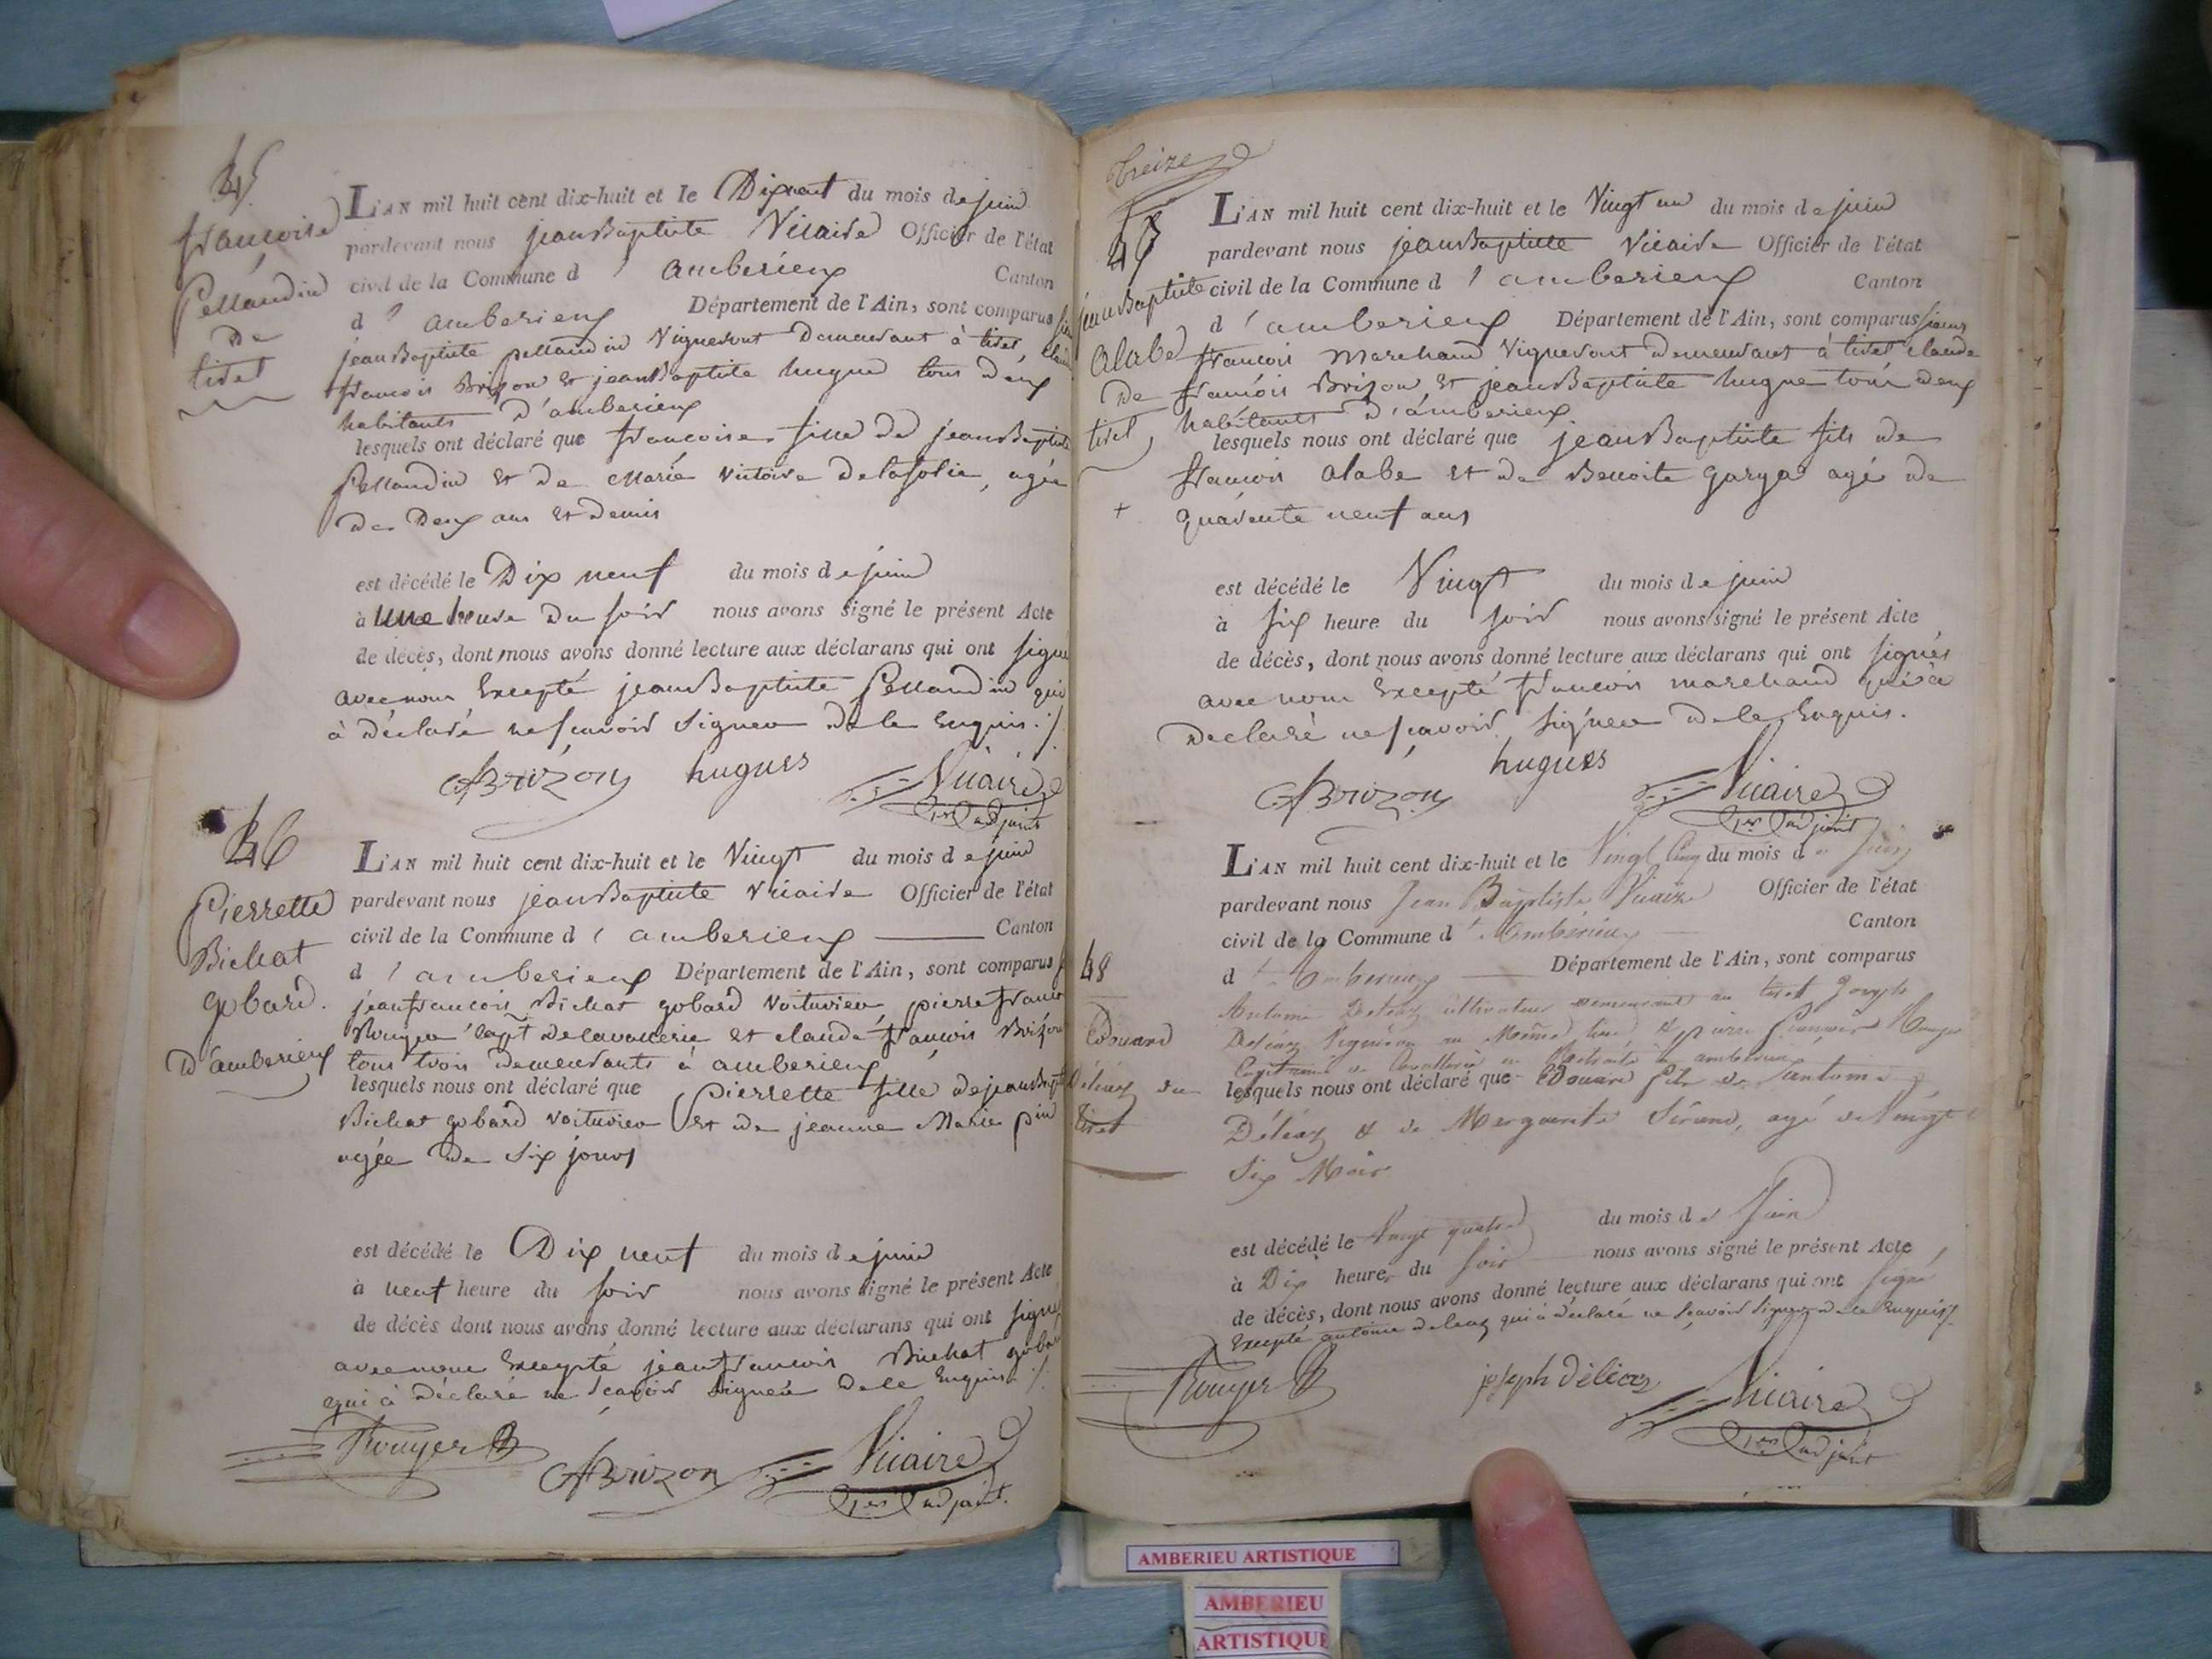 45
francoise
Pellaudin
De
tiret
L'AN mil huit cent dix-huit et le Dixneuf du mois de juin
pardevant nous jean Baptiste Vicaire Officier de l'état
civil de la Commune d'amberieux Canton
d'amberieux Département de l'Ain, sont comparus
jean Baptiste pellaudin Vigneront Demeurant à tiret,
francois Brizon et jean Baptiste hugue tous deux
habitants d'amberieux
lesquels ont déclaré que francoise fille de jean Baptiste
Pellaudin et de Marie Victoire Delafolie, agée
De Deux ans et Demis
est décédé le Dix neuf du mois de juin
à une heure Du soir nous avons signé le présent Acte
de décès, dont nous avons donné lecture aux déclarans qui ont signé
avec nous Excepté jean Baptiste Pellaudin qui
à Déclaré ne scavoir signer De le Enquis ./.
CfBrizon hugues Vicaire
1er adjoint
46
Pierrette
Bichat
gobard.
D'amberieux
L'AN mil huit cent dix-huit et le Vingt du mois de juin
pardevant nous jean Baptiste Vicaire Officier de l'état
civil de la Commune d'amberieux Canton
d'amberieux Département de l'Ain, sont comparus
jean francois Bichat gobard Voiturier, pierre franc
Rouyer capt De cavallerie et claude francois Brizon
tous trois Demeurants à amberieux
lesquels nous ont déclaré que Pierrette fille de jean Bapt
Bichat gobard voiturier et de jeanne Marie pin
agée De Six jours
est décédé le Dix neuf du mois de juin
à neuf heure du soir nous avons signé le présent Acte
de décès dont nous avons donné lecture aux déclarans qui ont signé
avec nous Excepté jean francois Bichat gobar
qui à Déclaré ne scavoir signer De le Enquis ./.
Rouyer CfBrizon Vicaire
1er adjoint.
treize
47
jean Baptiste
alabe
De
tiret
L'AN mil huit cent dix-huit et le Vingt un du mois de juin
pardevant nous jean Baptiste Vicaire Officier de l'état
civil de la Commune d'amberieux Canton
d'amberieux Département de l'Ain, sont comparus sieurs
francois Marchand Vigneront Demeurant à tiret claude
francois Brizon, et jean Baptiste hugue tous deux
habitants d'amberieux
lesquels nous ont déclaré que jean Baptiste fils de
francois alabe et de Benoite garga agé de
+ quarente neuf ans
est décédé le Vingt du mois de juin
à six heure du soir nous avons signé le présent Acte
de décès, dont nous avons donné lecture aux déclarans qui ont signés
avec nous Excepté francois marchand qui à
Declaré ne scavoir signer De le Enquis.
CfBrizon hugues Vicaire
1er adjoint
48
Edouard
Déléaz du
tiret
L'AN mil huit cent dix-huit et le Vingt Cinq du mois de Juin
pardevant nous Jean Baptiste Vicaire Officier de l'état
civil de la Commune d'Ambérieux Canton
d'Amberieux Département de l'Ain, sont comparus
Antoine Deléaz cultivateur demeurant au tiret Joseph
Deléaz Vigneron au Même lieu, et pierre françois Rouyer
Capitaine de Cavallerie en Retraite à amberieux
lesquels nous ont déclaré que Edouard fils de antoine
Déléaz et de Marguerite Sirand, agé de Vingt
Six Mois
est décédé le Vingt quatre du mois de Juin
à Dix heure du soir nous avons signé le présent Acte,
de décès, dont nous avons donné lecture aux déclarans qui ont signé
Excepté antoine deleaz qui à declaré ne sçavoir signer De ce Enquis ./.
Rouyer joseph déléaz Vicaire
1er adjoint
AMBERIEU ARTISTIQUE
AMBERIEU
ARTISTIQUE